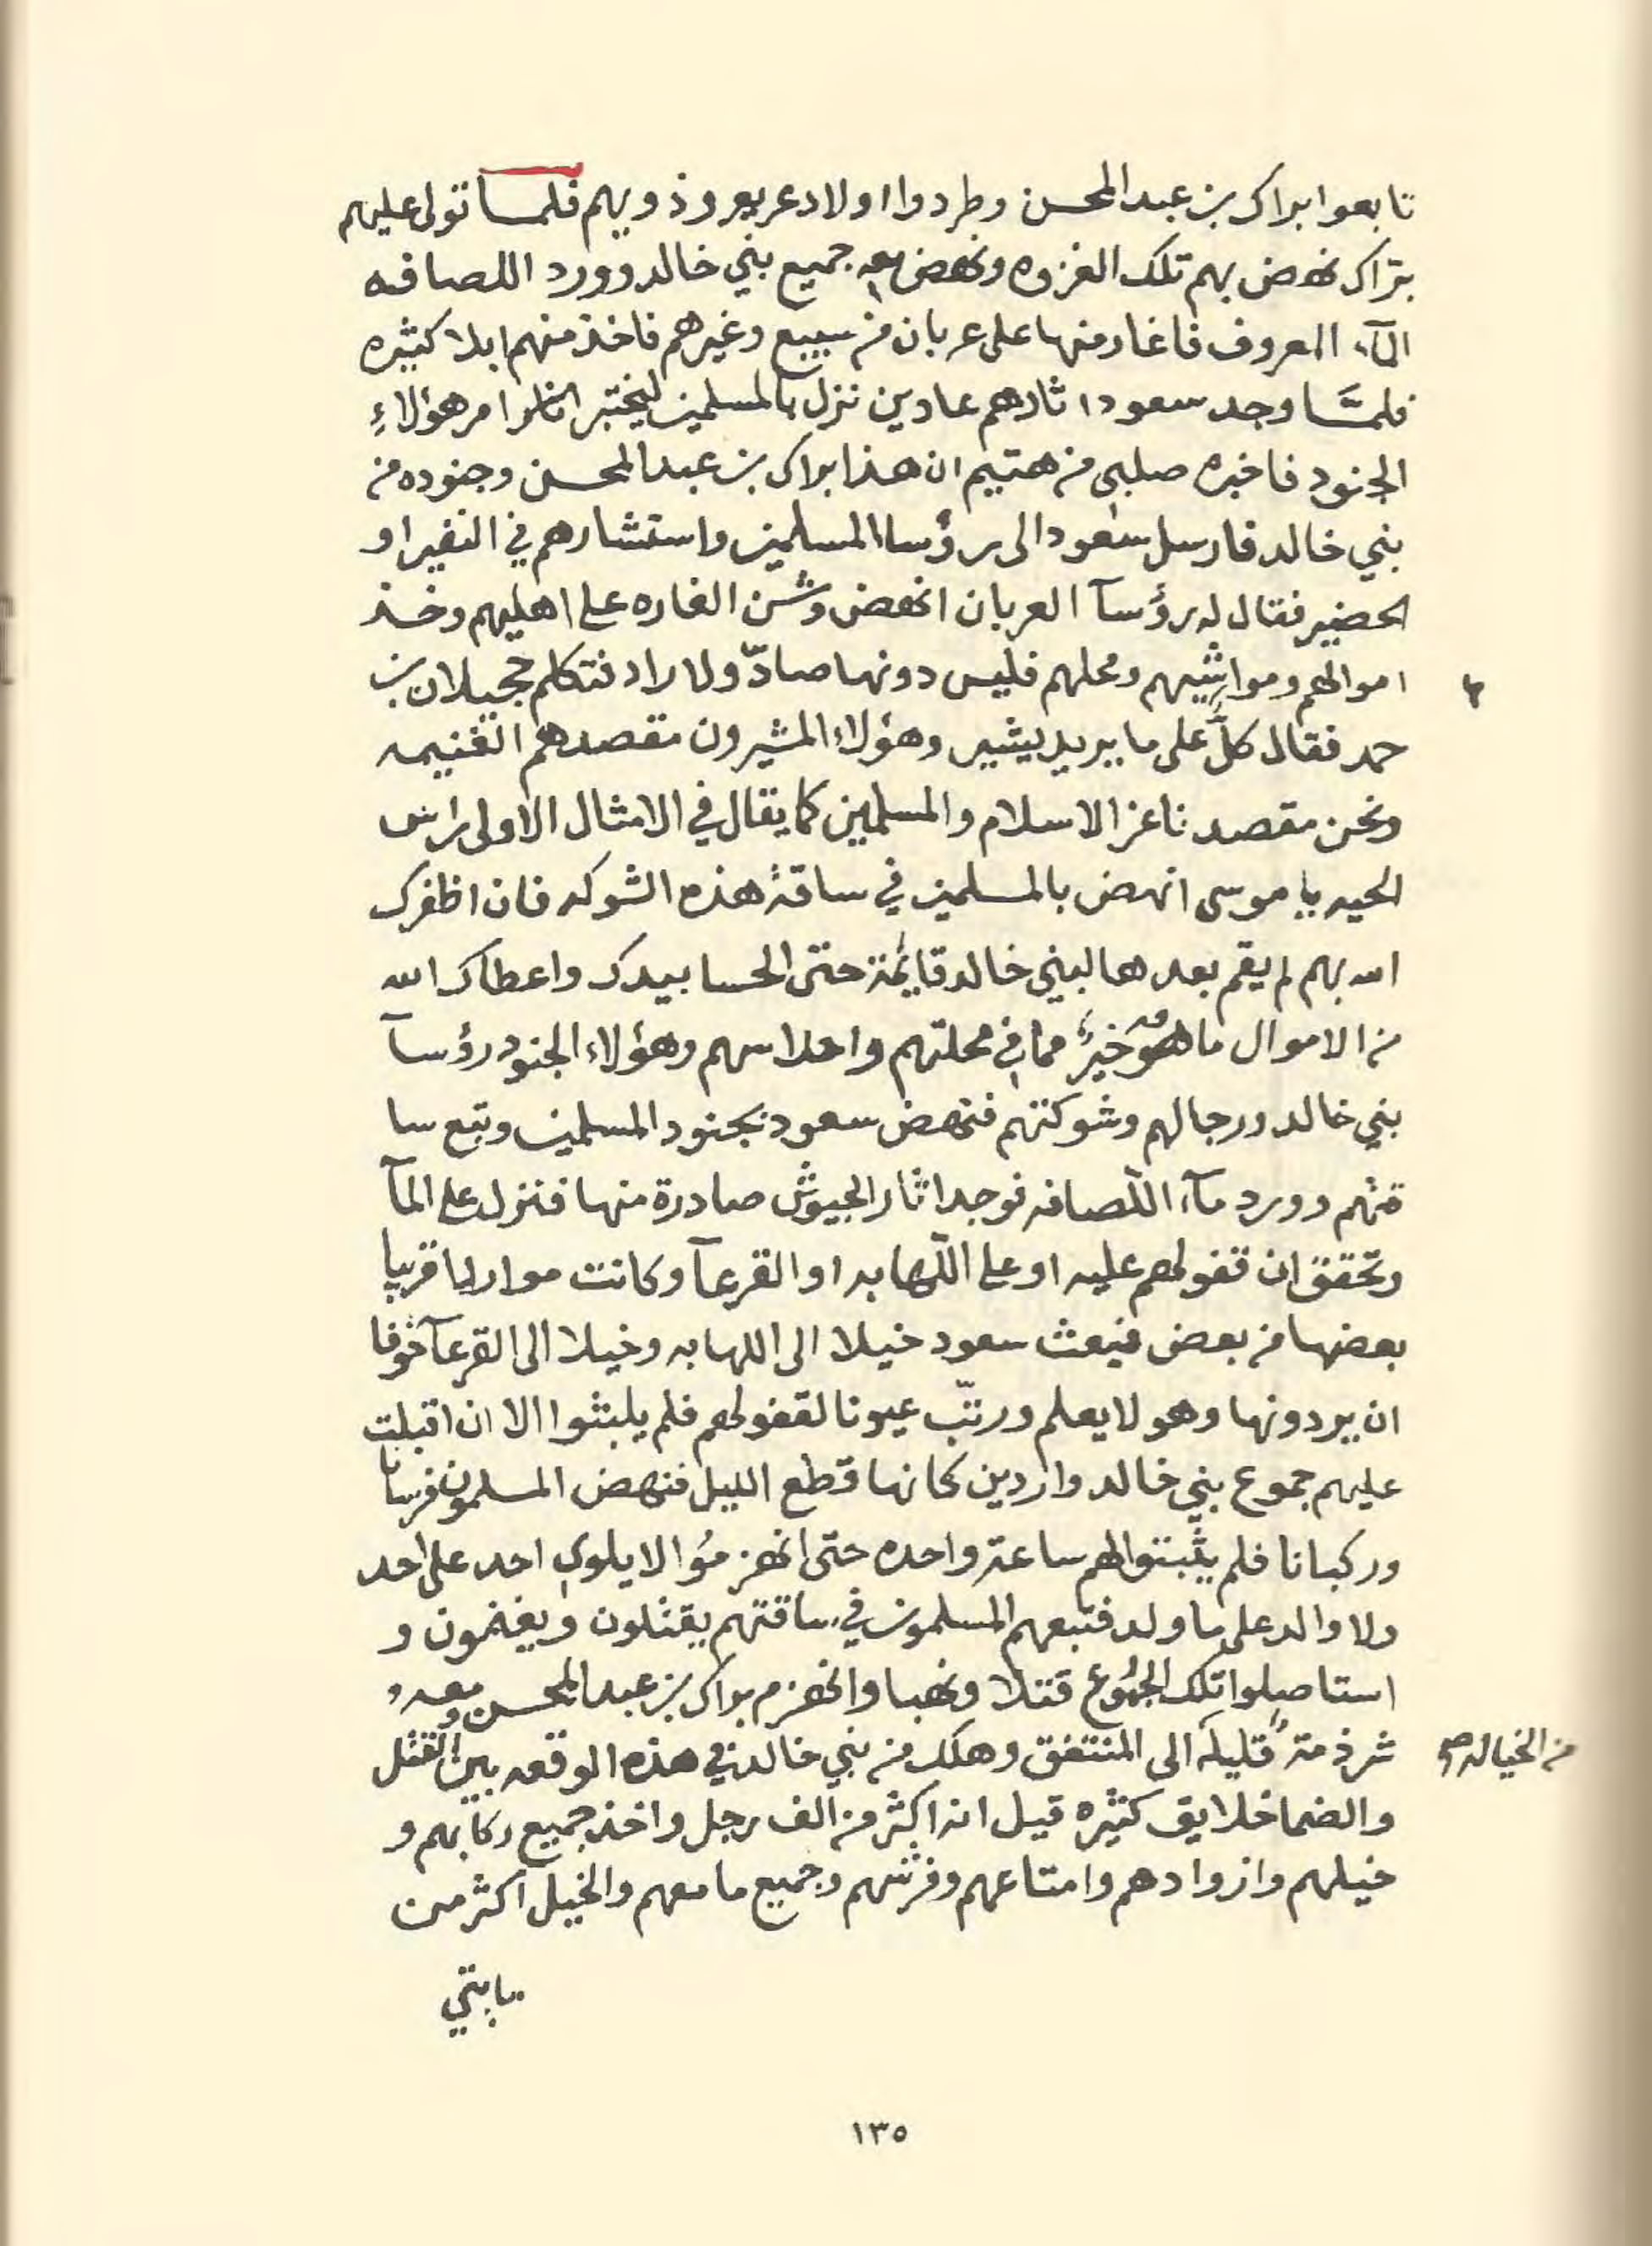 تابعوا براك بن عبد المحسن وطردوا اولاد عريعر وذويهم فلما تولى عليهم
براك نهض بهم تلك الغزوه ونهض معه جميع بني خالد وورد اللصافه
المآء المعروف فاغار منها على عربان من سبيع وغيرهم فاخذ منهم ابلا كثيره
فلمَّا وجد سعود اثارهم عادين نزل بالمسلمين ليختبر انظر امر هؤلاءِ
الجنود فاخبره صلبي من هتيم ان هذا براك بن عبد المحسن وجنوده من
بني خالد فارسل سعود الى رؤسا المسلمين واستشارهم في النفير او
الحضير فقال له رؤسآ العربان انهض وشن الغاره على اهليهم وخذ
اموالهم ومواشيهم ومحلهم فليس دونها صادّ ولا راد فتكلم حجيلان بن
حمد فقال كلٌّ على ما يريد يشير وهؤلاء المشيرون مقصدهم الغنيمه
ونحن مقصدنا عز الاسلام والمسلمين كما يقال في الامثال الاولى راس
الحيه يا موسى انهض بالمسلمين في ساقة هذه الشوكه فان اظفرك
الله بهم لم يقم بعدها لبني خالد قايمة حتى الحسا بيدك واعطاك الله
من الاموال ما هو خيرٌ مما في محلتهم واحلاسهم وهؤلاء الجنود رؤسآ
بني خالد ورجالهم وشوكتهم فنهض سعود بجنود المسلمين وتبع سا
قتهم وورد مآء اللّصافه فوجد اثار الجيوش صادرة منها فنزل على المآ
وتحقق ان قفولهم عليه او على اللّهابه او القرعآ وكانت موارد قريبا
بعضها من بعض فبعث سعود خيلا الى اللهابه وخيلا الى القرعآ خوفا
ان يردونها وهو لا يعلم ورتّب عيونا لقفولهم فلم يلبثوا الا ان اقبلت
عليهم جموع بني خالد واردين كانها قطع الليل فنهض المسلمون فرسانا
وركبانا فلم يثبتوا لهم ساعة واحده حتى انهزمُوا لا يلوي احد على احد
ولا والد على ما ولد فتبعهم المسلمون في ساقتهم يقتلون ويغنمون و
استاصلوا تلك الجمُوع قتلا ونهبا وانهزم براك بن عبد المحسن معه و
شرذمة قليلة الى المنتفق وهلك من بني خالد في هذه الوقعه بين القتل
من الخياله صح
والضما خلايق كثيره قيل انه اكثر من الف رجل واخذ جميع ركابهم و
خيلهم وازوادهم وامتاعهم وفرشهم وجميع ما معهم والخيل اكثر من
مايتي
١٣٥